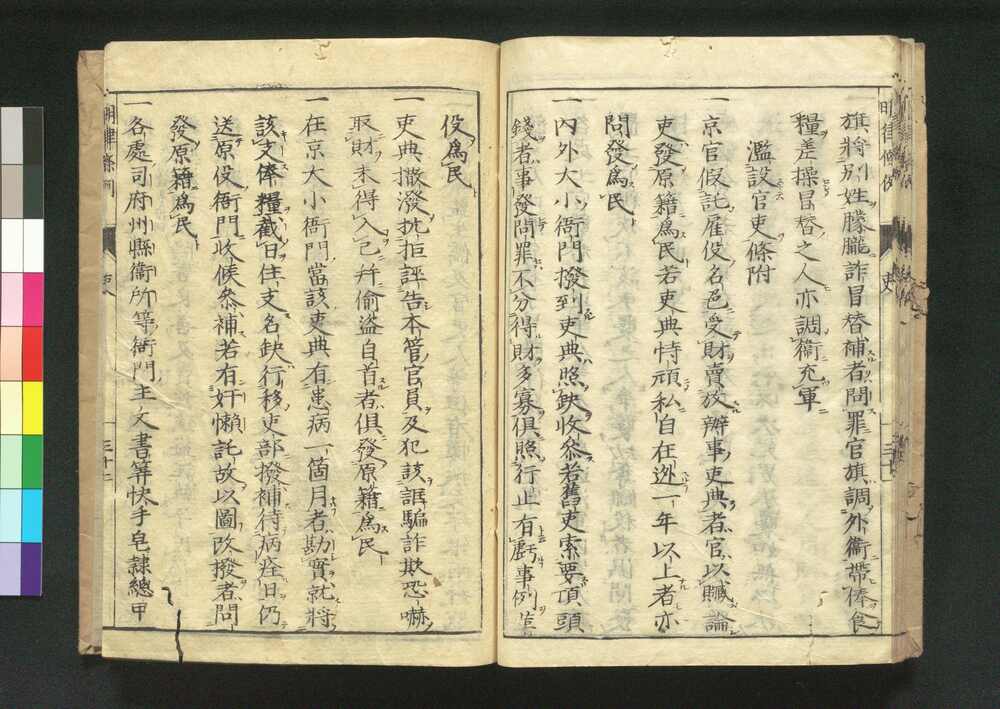 旗將別姓朦朧詐冒替補者問罪官旗調外衞帶俸食
糧差操冒替之人亦調衞充軍
濫設官吏條附
一京官假託雇役名色受財賣放辦事吏典者官以贓論
吏發原籍爲民若吏典恃頑私自在逃一年以上者亦
問發爲民
一內外大小衙門撥到吏典照缺收參若舊吏索要頂頭
錢者事發問罪不分得財多寡俱照行止有虧事例
役爲民
一吏典撒潑抗拒誣告本管官員及犯該誆騙詐欺恐嚇
取財未得入己幷偷盜自首者俱發原籍爲民
一在京大小衙門當該吏典有患病一箇月者勘實就將
該支俸糧截日住支名缺行移吏部撥補待病痊日仍
送原役衙門收候參補若有奸懶託故以圖改撥者問
發原籍爲民
一各處司府州縣衞所等衙門主文書筭快手皂隸總甲
三十二